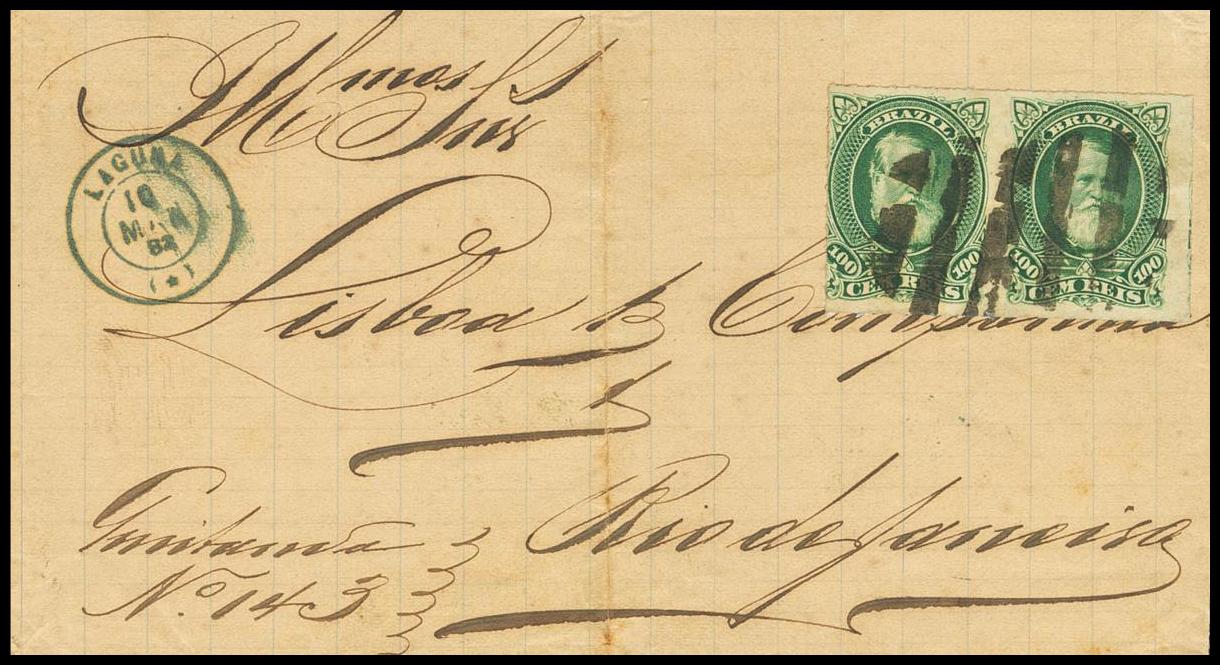 Illmos Snrs
LAGUNA
10
MAR
82
(*)
BRAZIL
100 CEM REIS 100
BRAZIL
100 CEM REIS 100
Lisboa & Companhia
Quitanda
Rio de Janeiro
No. 143